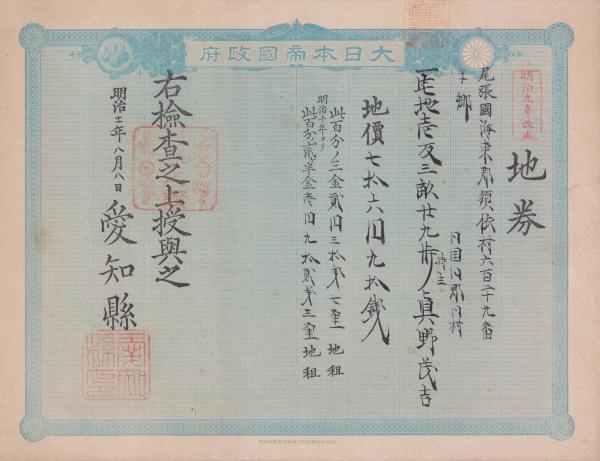 大日本帝國政府
明治九年改正
地券
尾張國海東郡須依村六百二十九番
字郷
一宅地壱反三畝廿九歩
同国同郡同村
持主 真野茂吉
地價七拾六円九拾銭
此百分ノ三金貳円三拾銭七厘 地租
明治十年ヨリ
此百分ノ貳半金壱円九拾貳銭三厘 地租
右檢査之上授與之
明治十一年八月八日
愛知縣
愛知縣印